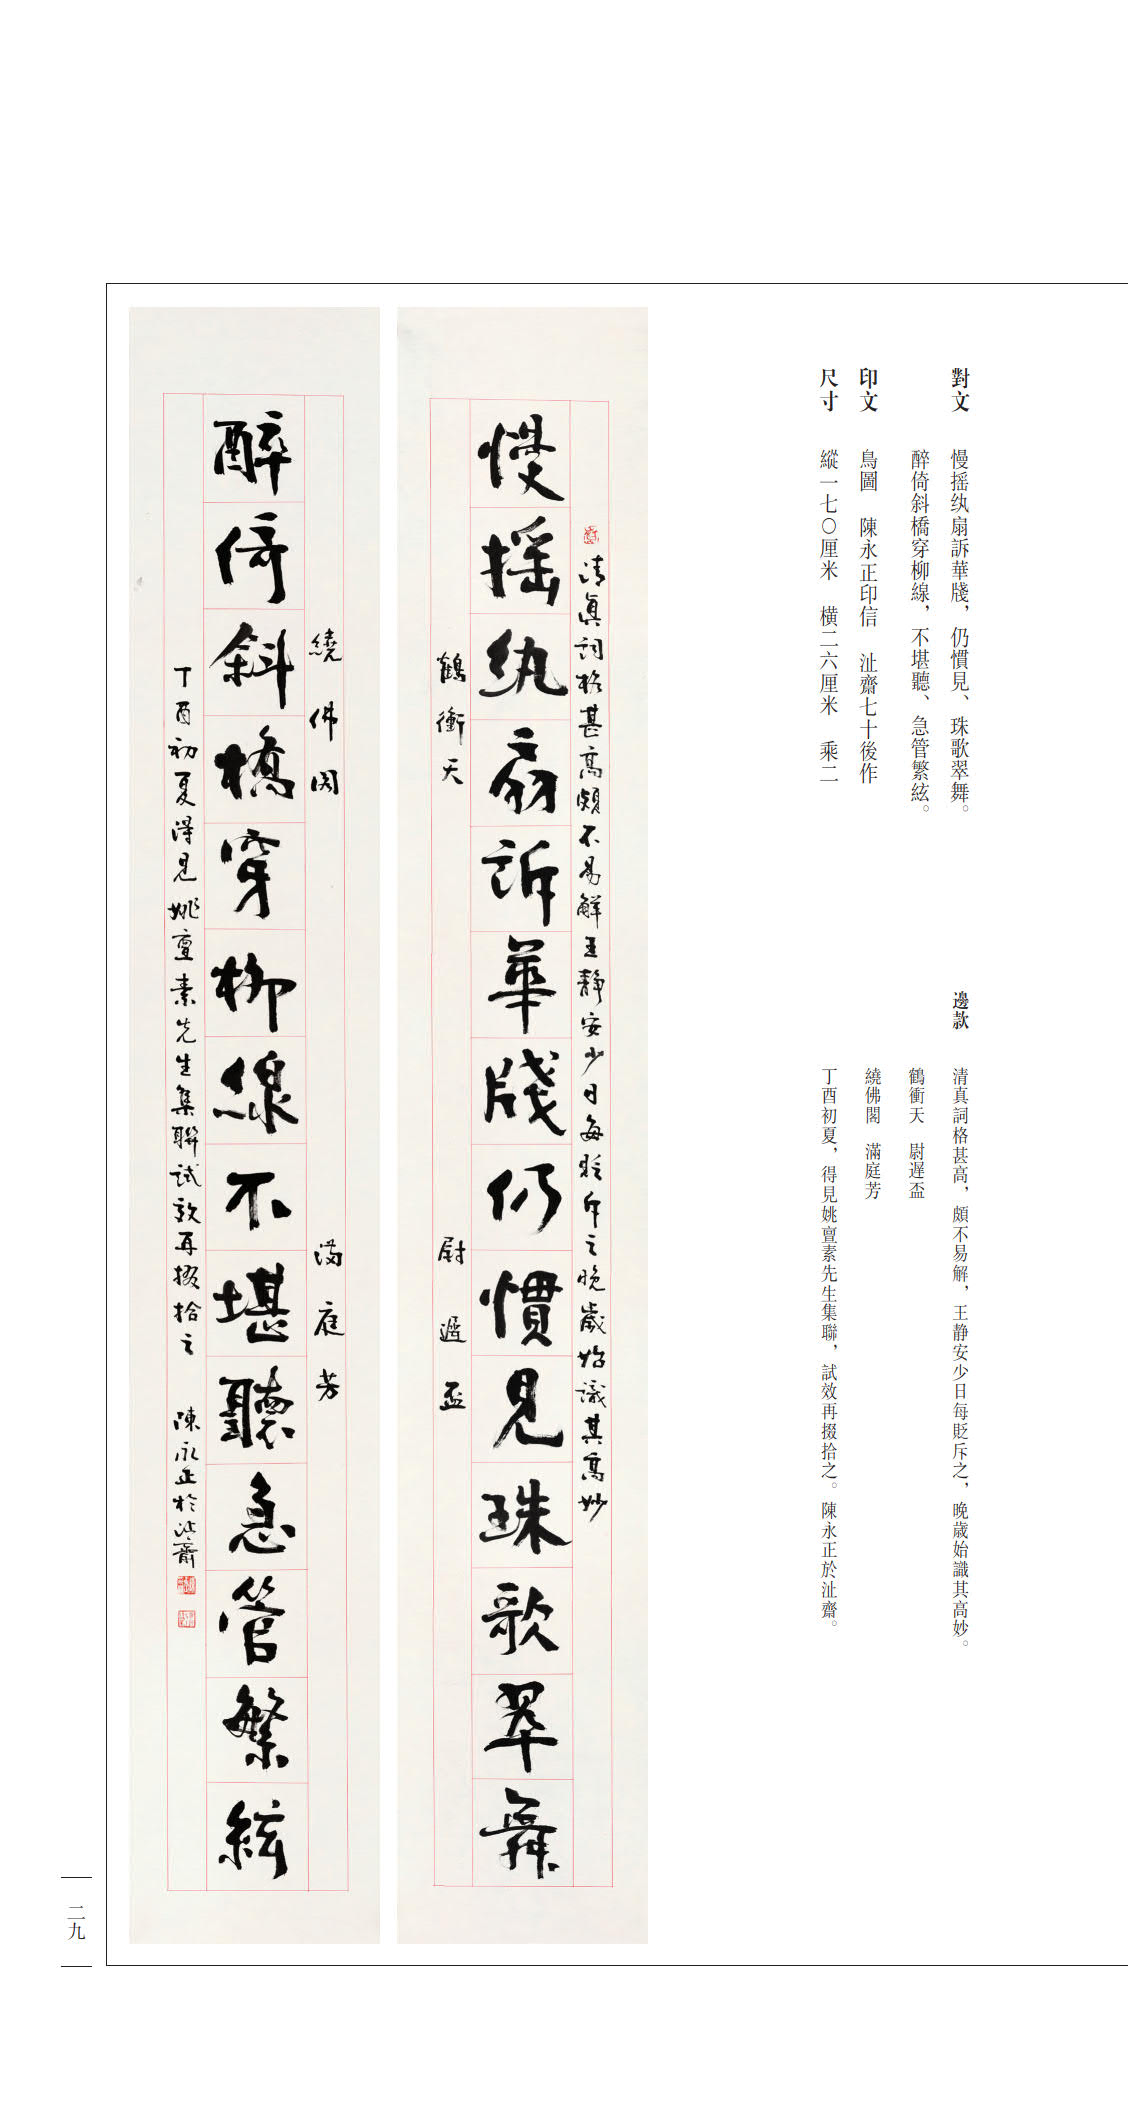 對文　慢摇纨扇訴華牋，仍慣見、珠歌翠舞。
醉倚斜橋穿柳線，不堪聽、急管繁絃。
印文　鳥圖　陳永正印信　沚齋七十後作
尺寸　縱一七〇厘米　横二六厘米　乘二
邊款　清真詞格甚高，頗不易解，王静安少日每貶斥之，晚歲始識其高妙。
鶴衝天　尉遲盃
繞佛閣　滿庭芳
丁酉初夏，得見姚亶素先生集聯，試效再掇拾之。陳永正於沚齋。
清真詞格甚高頗不易解王静安少日每貶斥之晚歲始識其高妙
慢摇纨扇訴華牋仍慣見珠歌翠舞
鶴衝天　尉遲盃
繞佛閣　滿庭芳
醉倚斜橋穿柳線不堪聽急管繁絃
丁酉初夏得見姚亶素先生集聯試效再掇拾之　陳永正於沚齋
二九